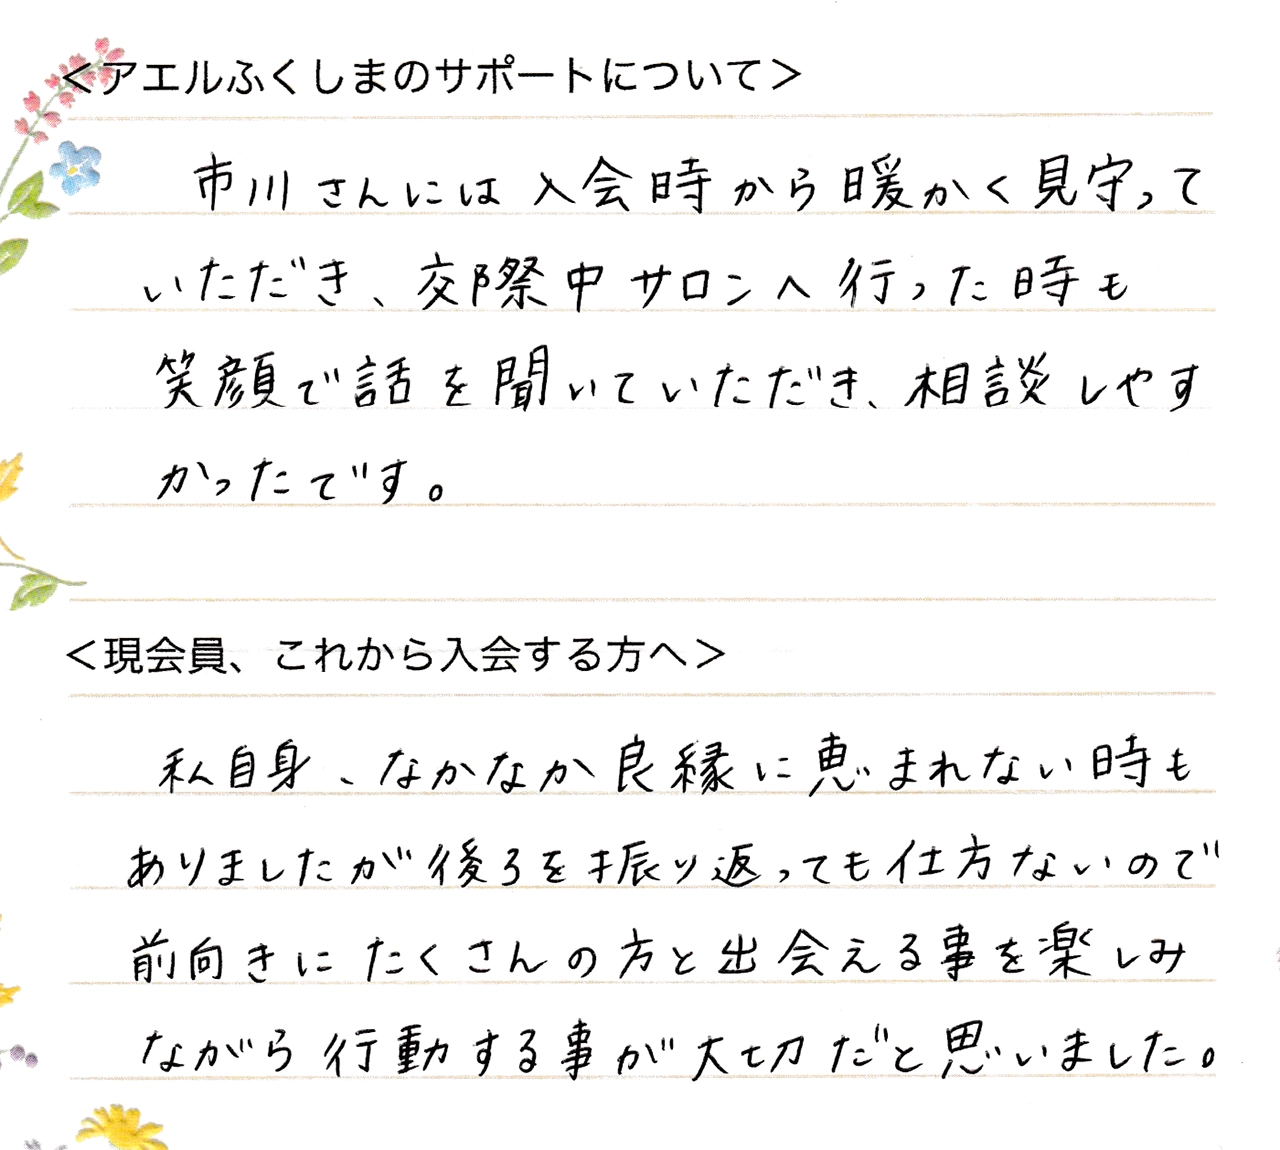 ＜アエルふくしまのサポートについて＞
市川さんには入会時から暖かく見守って
いただき、交際中サロンへ行った時も
笑顔で話を聞いていただき、相談しやす
かったです。
＜現会員、これから入会する方へ＞
私自身、なかなか良縁に恵まれない時も
ありましたが後ろを振り返っても仕方ないので
前向きにたくさんの方と出会える事を楽しみ
ながら行動する事が大切だと思いました。